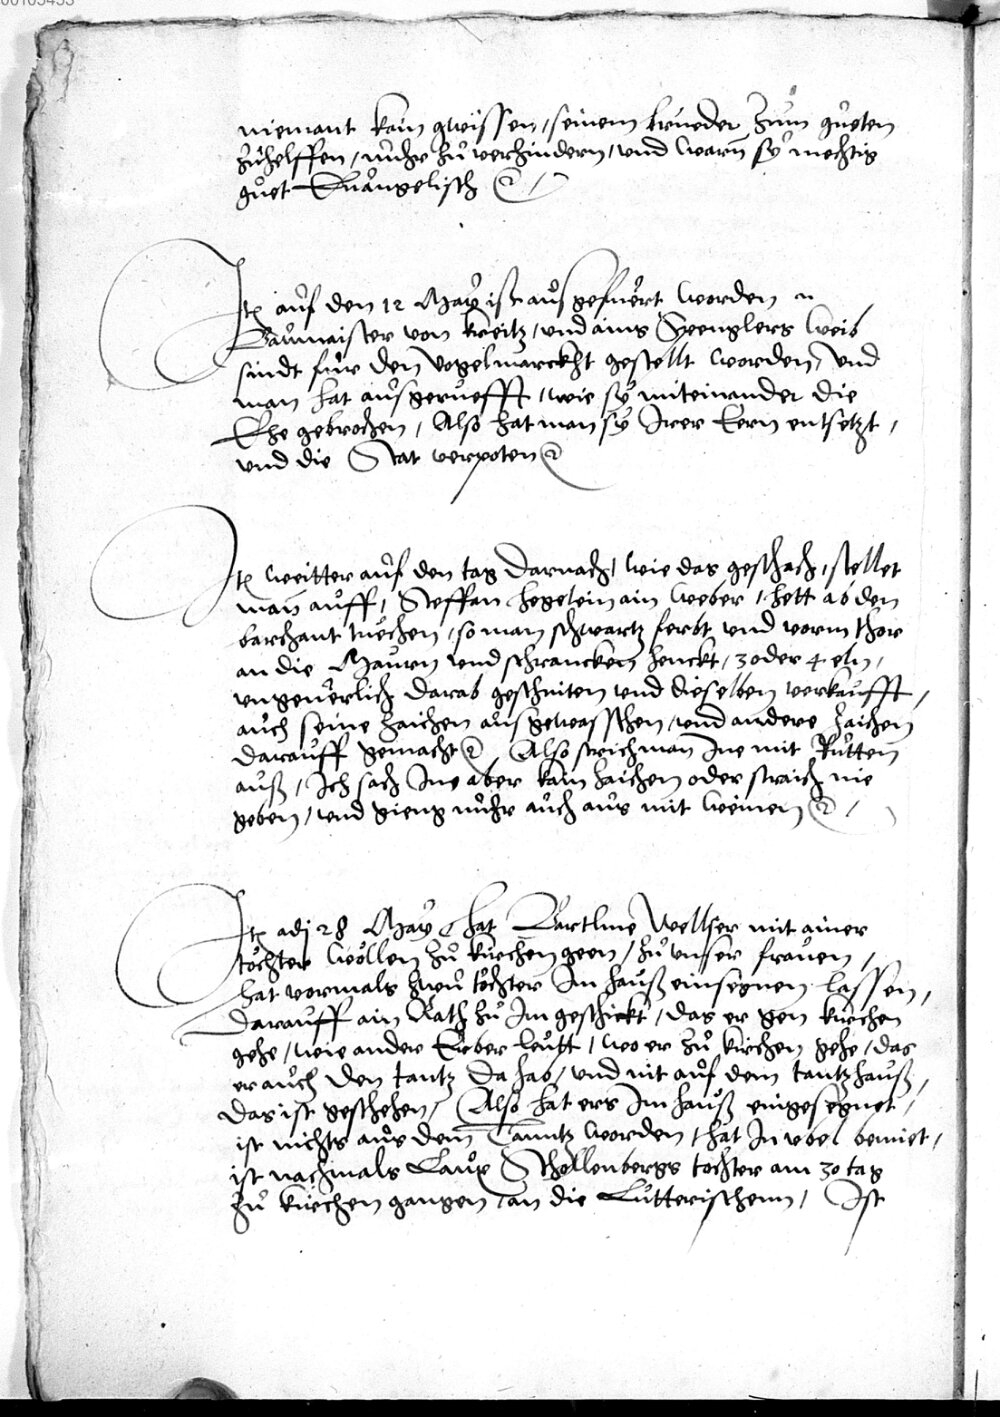 niemant kain gwissen, seinem brueder zum gueten
zuhelffen, nuhr zu verhindern, und warn sy mechtig
guet Evangelisch
Jt auf den 12 May ist ausgefuert worden n
Baumaister von kreitz, und ains Spenglers weib
sindt fur den vogelmarckht gestellt worden, und
man hat ausgeruefft, wie sy miteinander die
Ehe gebrochen, Also hat man sy Irer Eern entsetzt,
und die Stat verpoten
Jt weitter auf den tag darnach, wie das geschach, stellet
man auff, Steffan Hegelein ain weber, hett ab den
barchant tuechen, so man schwartz ferbt, und vorm thor
an die Maurn und schrancken henckt, 3 oder 4 eln,
ungeverlich darab geschniten und dieselben verkaufft,
auch seine zaichen ausgewasschen, und andere zaichen
darauff gemacht, Also strich man Jne mit Rutten
auß, Jch sach Jne aber kain zaichen oder straich nie
geben, und gieng nuhr auch aus mit weinen
Jt adj 28 May hat Bartlme Wellser mit ainer
tochter wöllen zu kirchen geen, zu unser frauen,
hat vormals zwu töchter Im hauß einsegnen lassen,
darauff ain Rath zu Jm geschickt, das er gen kirchen
gehe, wie ander Erber leutt, wo er zu kirchen gehe, das
er auch den tantz da hab, und nit auf dem tantzhauß,
das ist geschehen, Also hat ers Jm hauß eingesegnet,
ist nichts aus dem Tanntz worden, hat Jn ubel bemiet,
ist nachmals Laux Schellenbergs tochter am 30 tag
zu kirchen gangen, an die Lutterischenn, Ist